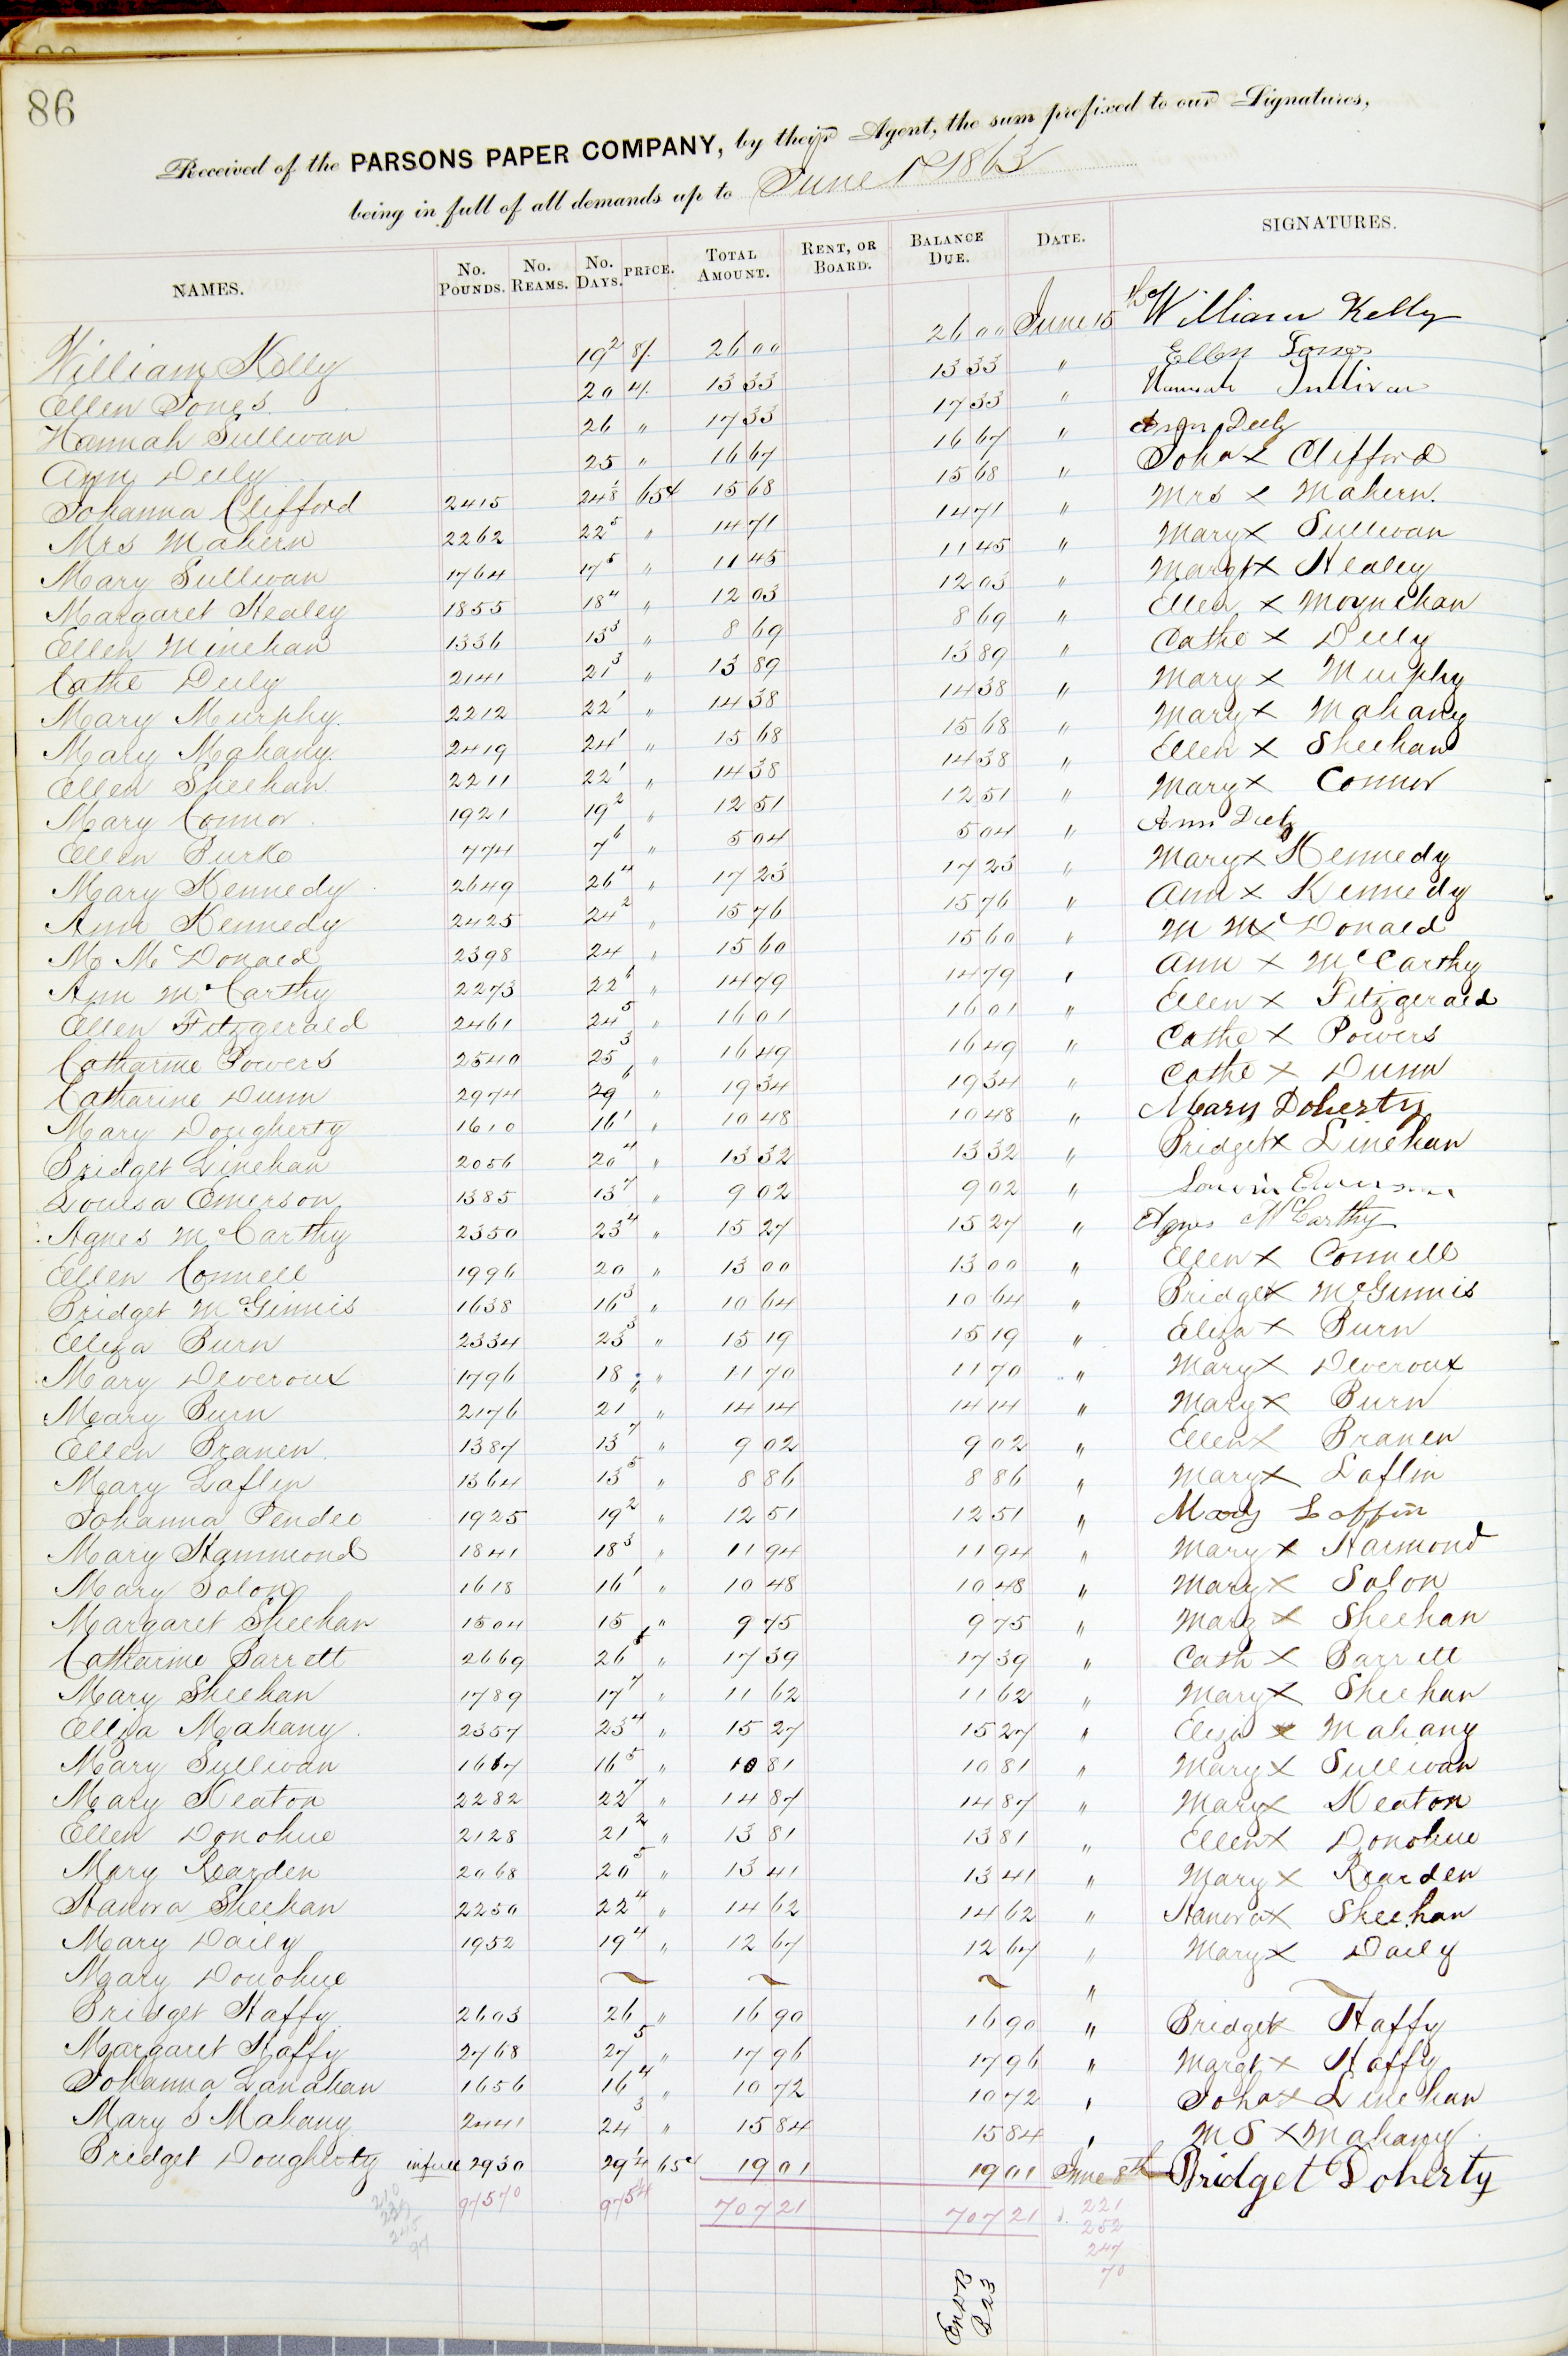 86
Received of the PARSONS PAPER COMPANY, by their Agent, the sum prefixed to our Signatures,
being in full of all demands up to June 1st 1863
NAMES. No. POUNDS. No. REAMS. No. DAYS. PRICE. TOTAL AMOUNT. RENT, OR BOARD. BALANCE DUE. DATE. SIGNATURES.
William Kelly 19 2 8/. 26 00 26 00 June 15th William Kelly
Ellen Jones 20 4/. 13 33 13 33 " Ellen Jones
Hannah Sullivan 26 " 17 33 17 33 " Hannah Sullivan
Ann Deely 25 " 16 67 16 67 " Ann Deely
Johanna Clifford 2415 24 1/8 65¢ 15 68 15 68 " Joha x Clifford
Mrs Mahern 2262 22 5 " 14 71 14 71 " Mrs x Mahern.
Mary Sullivan 1764 17 5 " 11 45 11 45 " Mary x Sullivan
Margaret Healey 1855 18 4 " 12 03 12 03 " Margt x Healey
Ellen Minehan 1336 13 3 " 8 69 8 69 " Ellen x Moynehan
Cathe Deely 2141 21 3 " 13 89 13 89 " Cathe x Deely
Mary Murphy. 2212 22 1 " 14 38 14 38 " Mary x Murphy
Mary Mahany. 2419 24 1 " 15 68 15 68 " Mary x Mahany
Ellen Sheehan 2211 22 1 " 14 38 14 38 " Ellen x Sheehan
Mary Connor. 1921 19 2 " 12 51 12 51 " Mary x Connor
Ellen Burke 774 7 6 " 5 04 5 04 " Ann Deely
Mary Kennedy 2649 26 4 " 17 23 17 23 " Mary x Kennedy
Ann Kennedy 2425 24 2 " 15 76 15 76 " Ann x Kennedy
M McDonald 2398 24 " 15 60 15 60 " M Mx Donald
Ann McCarthy 2273 22 6 " 14 79 14 79 " Ann x McCarthy
Ellen Fitzgerald 2461 24 5 " 16 01 16 01 " Ellen x Fitzgerald
Catharine Powers 2540 25 3 " 16 49 16 49 " Cathe x Powers
Catharine Dunn 2974 29 6 " 19 34 19 34 " Cathe x Dunn
Mary Dougherty 1610 16 1 " 10 48 10 48 " Mary Doherty
Bridget Linehan 2056 20 4 " 13 32 13 32 " Bridget x Linehan
Louisa Emerson 1385 13 7 " 9 02 9 02 " Louisa Emerson
Agnes McCarthy 2350 23 4 " 15 27 15 27 " Agnes McCarthy
Ellen Connell 1996 20 " 13 00 13 00 " Ellen x Connell
Bridget McGinnis 1638 16 3 " 10 64 10 64 " Bridget x McGinnis
Eliza Burn 2334 23 3 " 15 19 15 19 " Eliza x Burn
Mary Deveroux 1796 18 " 11 70 11 70 " Mary x Deveroux
Mary Burn 2176 21 6 " 14 14 14 14 " Mary x Burn
Ellen Branen 1387 13 7 " 9 02 9 02 " Ellen x Branen
Mary Laflin 1364 13 5 " 8 86 8 86 " Mary x Laflin
Johanna Pender 1925 19 2 " 12 51 12 51 " Mary Laffin
Mary Hammond 1841 18 3 " 11 94 11 94 " Mary x Harmond
Mary Solon 1618 16 1 " 10 48 10 48 " Mary x Solon
Margaret Sheehan 1504 15 " 9 75 9 75 " Marg x Sheehan
Catharine Barrett 2669 26 6 " 17 39 17 39 " Cath x Barrett
Mary Sheehan 1789 17 7 " 11 62 11 62 " Mary x Sheehan
Eliza Mahany. 2357 23 4 " 15 27 15 27 " Eliza x Mahany
Mary Sullivan 1667 16 5 " 10 81 10 81 " Mary x Sullivan
Mary Keaton 2282 22 7 " 14 87 14 87 " Mary x Keaton
Ellen Donohue 2128 21 2 " 13 81 13 81 " Ellen x Donohue
Mary Rearden 2068 20 5 " 13 41 13 41 " Mary x Rearden
Hanora Sheehan 2250 22 4 " 14 62 14 62 " Hanora x Sheehan
Mary Daily 1952 19 4 " 12 67 12 67 " Mary x Daily
Mary Donohue ~ ~ ~ " ~
Bridget Haffy 2603 26 " 16 90 16 90 " Bridget x Haffy
Margaret Haffy 2768 27 5 " 17 96 17 96 " Margt x Haffy
Johanna Lanahan 1656 16 4 " 10 72 10 72 " Joha x Linehan
Mary S Mahany 2441 24 3 " 15 84 15 84 " M S x Mahany.
Bridget Dougherty in full 2930 29 1/4 65¢ 19 01 19 01 June 8th Bridget Doherty
97570 975 4 707 21 707 21
221
252
247
70
Ent DB
B 23